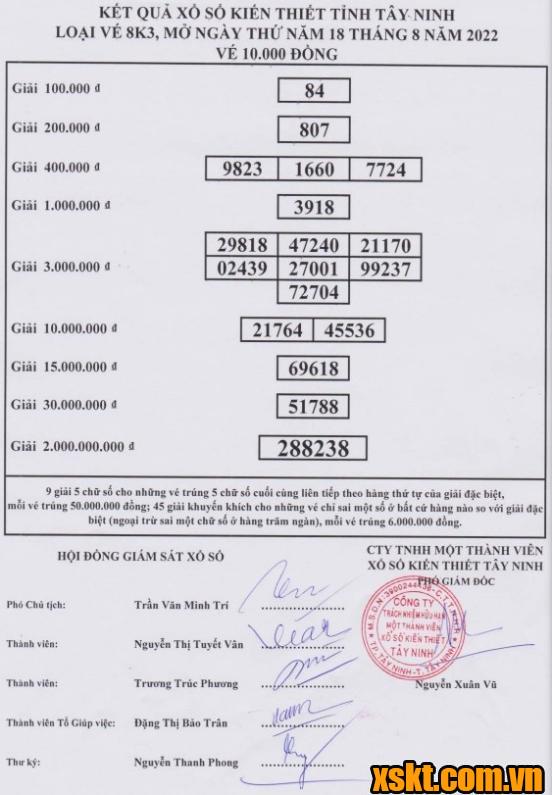 KẾT QUẢ XỔ SỐ KIẾN THIẾT TỈNH TÂY NINH
LOẠI VÉ 8K3, MỞ NGÀY THỨ NĂM 18 THÁNG 8 NĂM 2022
VÉ 10.000 ĐỒNG
Giải 100.000 đ 84
Giải 200.000 đ 807
Giải 400.000 đ 9823 1660 7724
Giải 1.000.000 đ 3918
29818 47240 21170
Giải 3.000.000 đ 02439 27001 99237
72704
Giải 10.000.000 đ 21764 45536
Giải 15.000.000 đ 69618
Giải 30.000.000 đ 51788
Giải 2.000.000.000 đ 288238
9 giải 5 chữ số cho những vé trúng 5 chữ số cuối cùng liên tiếp theo hàng thứ tự của giải đặc biệt,
mỗi vé trúng 50.000.000 đồng; 45 giải khuyến khích cho những vé chỉ sai một số ở bất cứ hàng nào so với giải đặc
biệt (ngoại trừ sai một chữ số ở hàng trăm ngàn), mỗi vé trúng 6.000.000 đồng.
HỘI ĐỒNG GIÁM SÁT XỔ SỐ
CTY TNHH MỘT THÀNH VIÊN
XỔ SỐ KIẾN THIẾT TÂY NINH
PHÓ GIÁM ĐỐC
M.S.D.N:3900244438-C.T.T.N.H.H
CÔNG TY
TRÁCH NHIỆM HỮU HẠN
MỘT THÀNH VIÊN
XỔ SỐ KIẾN THIẾT
TÂY NINH
TP.TÂY NINH-T.TÂY NINH
Phó Chủ tịch: Trần Văn Minh Trí
Thành viên: Nguyễn Thị Tuyết Vân
Thành viên: Trương Trúc Phương
Nguyễn Xuân Vũ
Thành viên Tổ Giúp việc: Đặng Thị Bảo Trân
Thư ký: Nguyễn Thanh Phong
xskt.com.vn